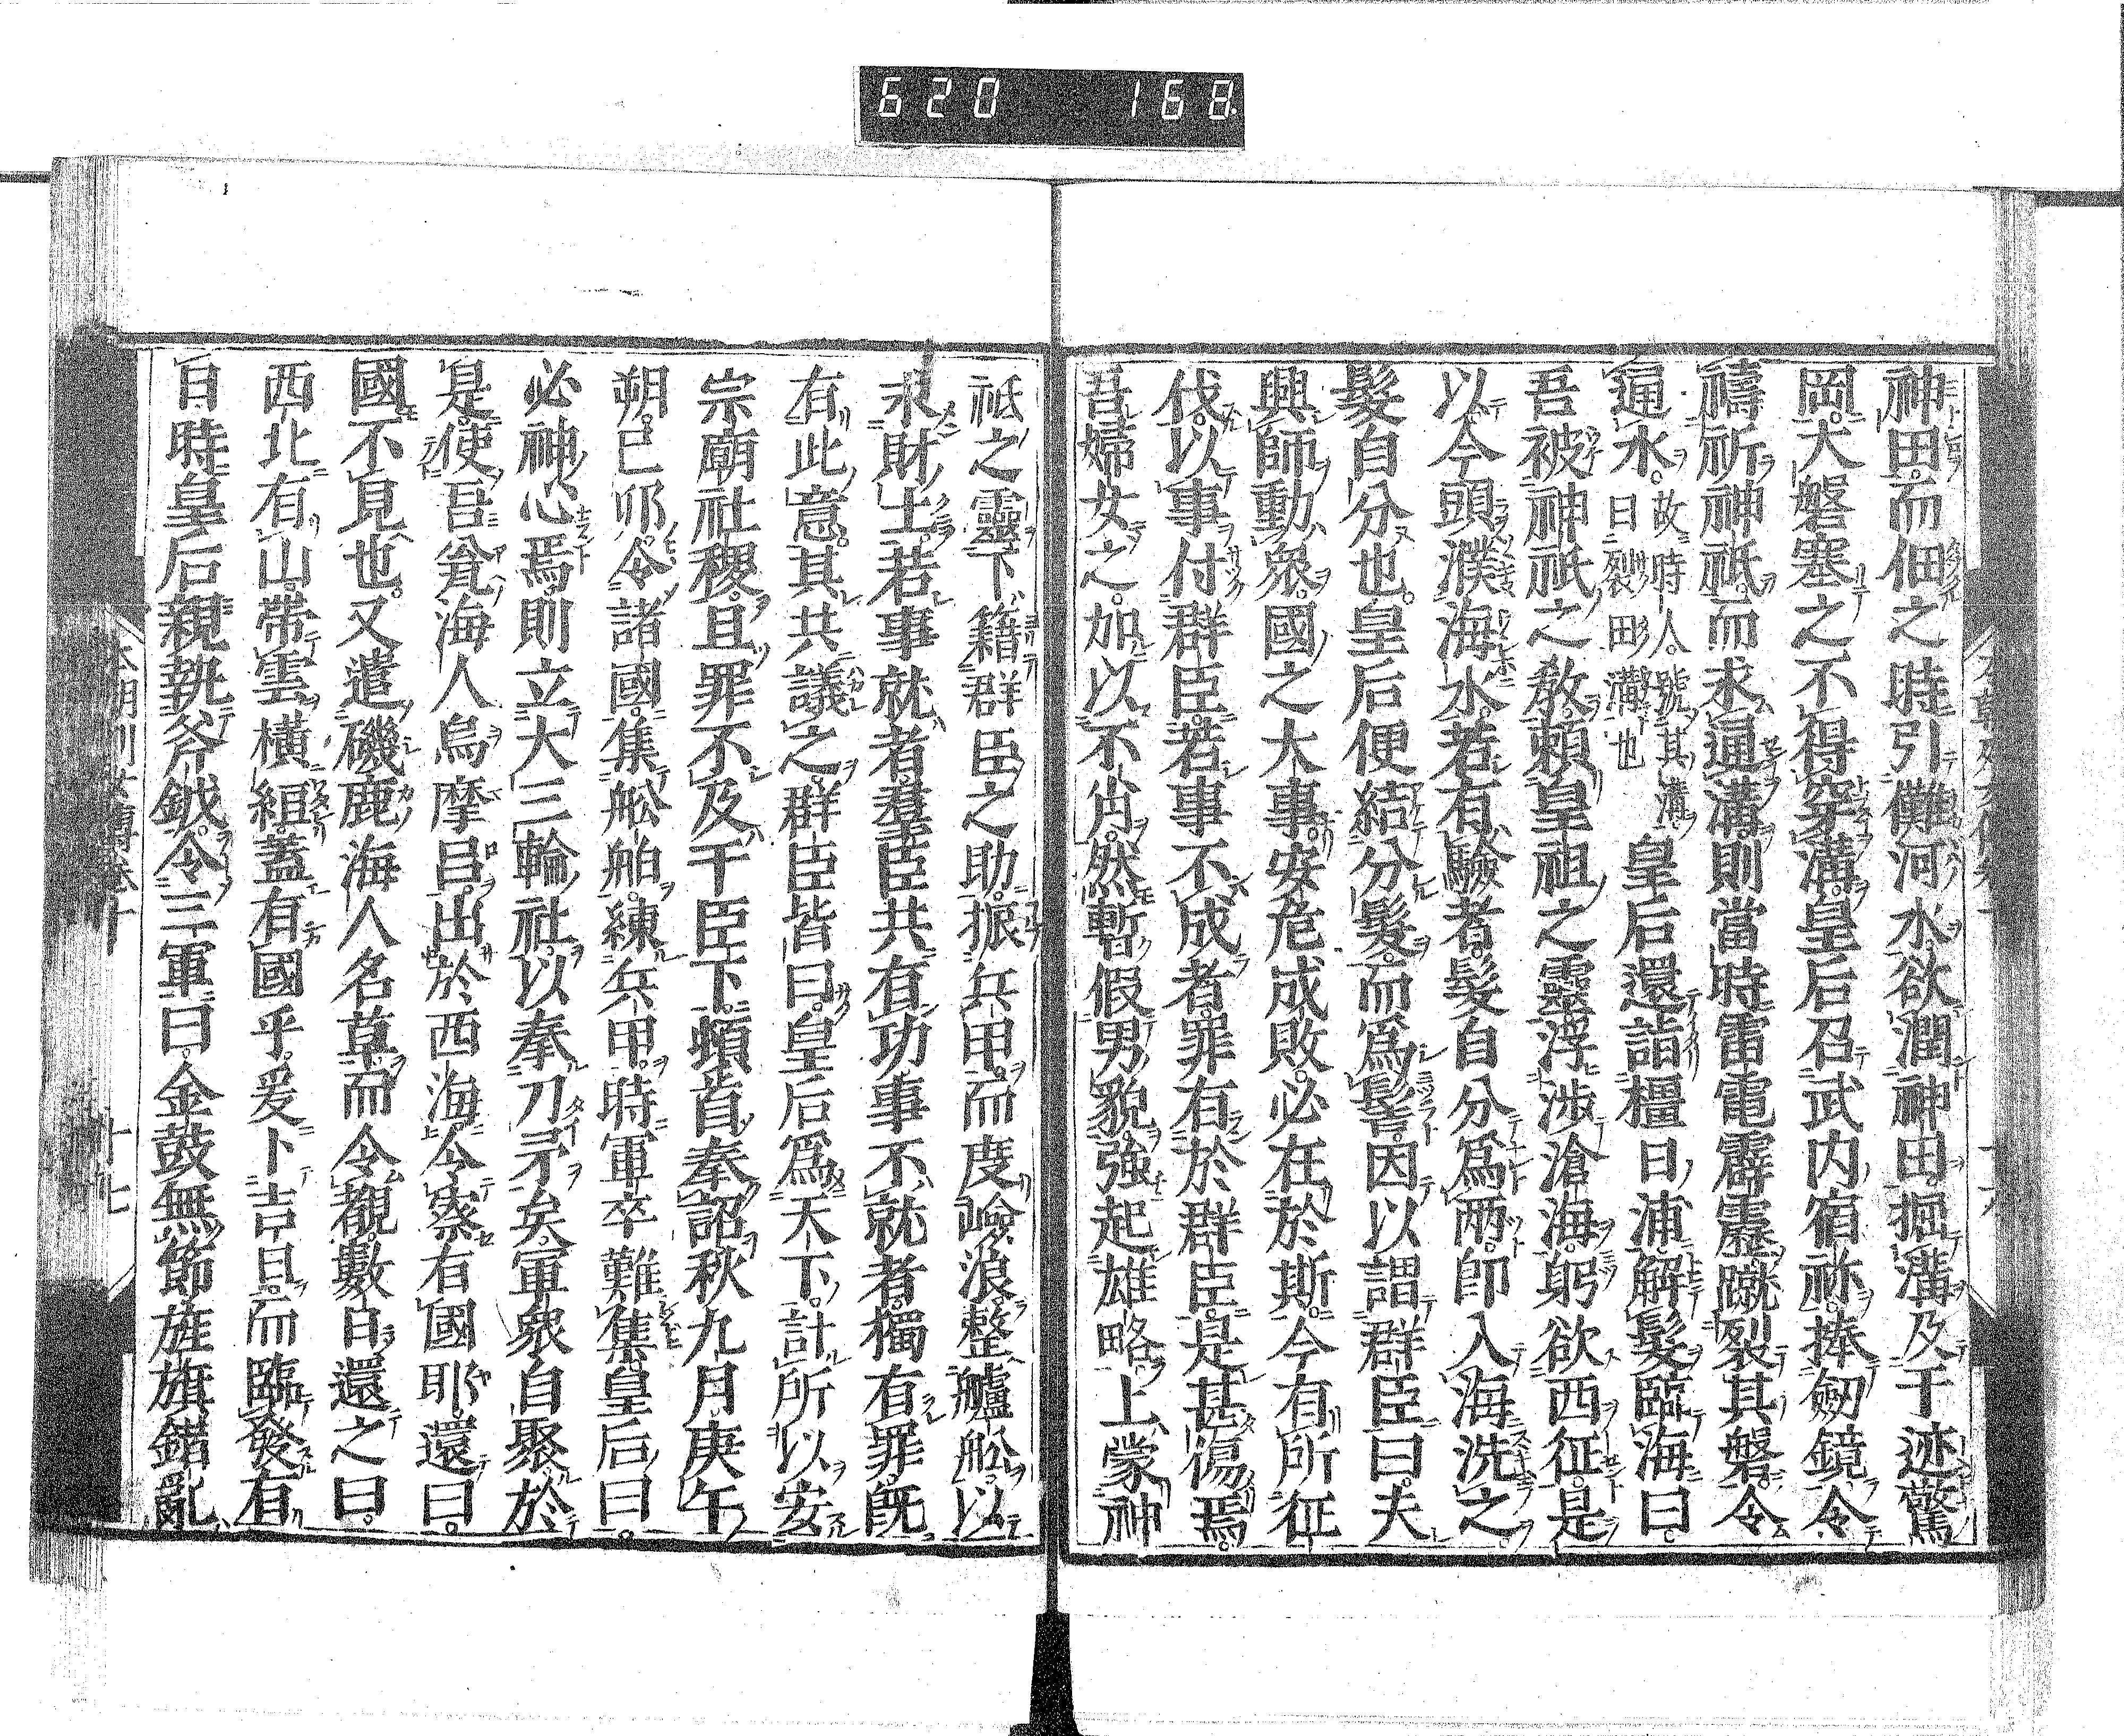 620 168
神田而佃之時引儺河水欲潤神田掘溝及于迹驚
岡大磐塞之不得穿溝皇后召武内宿祢捧劒鏡令
禱祈神祇而求通溝則當時雷電霹靂蹴裂其磐令
通水。故時人號其溝曰裂田溝也 皇后還詣橿日浦解髮臨海曰
吾被神祇之敎賴皇祖之靈浮渉滄海躬欲西征是
以今頭濮海水若有驗者髮自分爲兩卽入海洗之
髮自分也皇后便結分髮而爲髻因以謂群臣曰夫
興師動衆國之大事安危成敗必在於斯今有所征
伐以事付群臣若事不成者罪有於群臣是甚傷焉
吾婦女之加以不肖然暫假男貌強起雄略上蒙神
祇之靈下籍群臣之助振兵甲而度嶮浪整艫舩以
求財土若事就者羣臣共有功事不就者獨有罪既
有此意其共議之群臣皆曰皇后爲天下計所以安
宗廟社稷且罪不及于臣下頓首奉詔秋九月庚午
朔己卯令諸國集舩舶練兵甲時軍卒難集皇后曰
必神心焉則立大三輪社以奉刀矛矣軍衆自聚於
是使吾瓮海人烏摩呂出於西海令察有國耶還曰
國不見也又遣磯鹿海人名草而令覩數日還之曰
西北有山帶雲橫組蓋有國乎爰卜吉日而臨發有
日時皇后親執斧鉞令三軍曰金鼓無節旌旗錯亂
十七